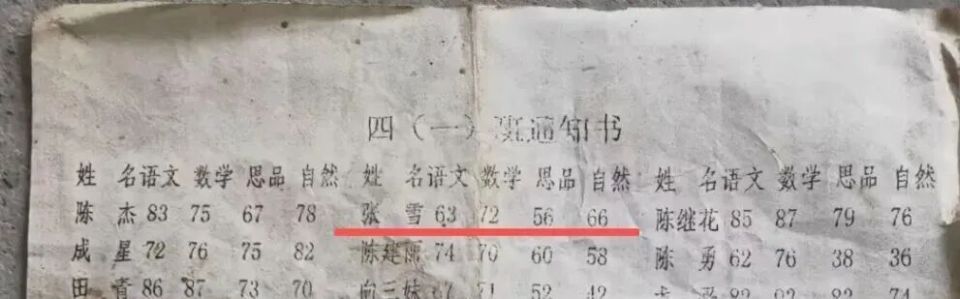 四（一）班通知书
姓 名 语文 数学 思品 自然 姓 名 语文 数学 思品 自然 姓 名 语文 数学 思品 自然
陈 杰 83 75 67 78 张 雪 63 72 56 66 陈继花 85 87 79 76
成 星 72 76 75 82 陈建丽 74 70 60 58 陈 勇 62 76 38 36
田 青 86 87 73 70 向三妹 67 71 52 42